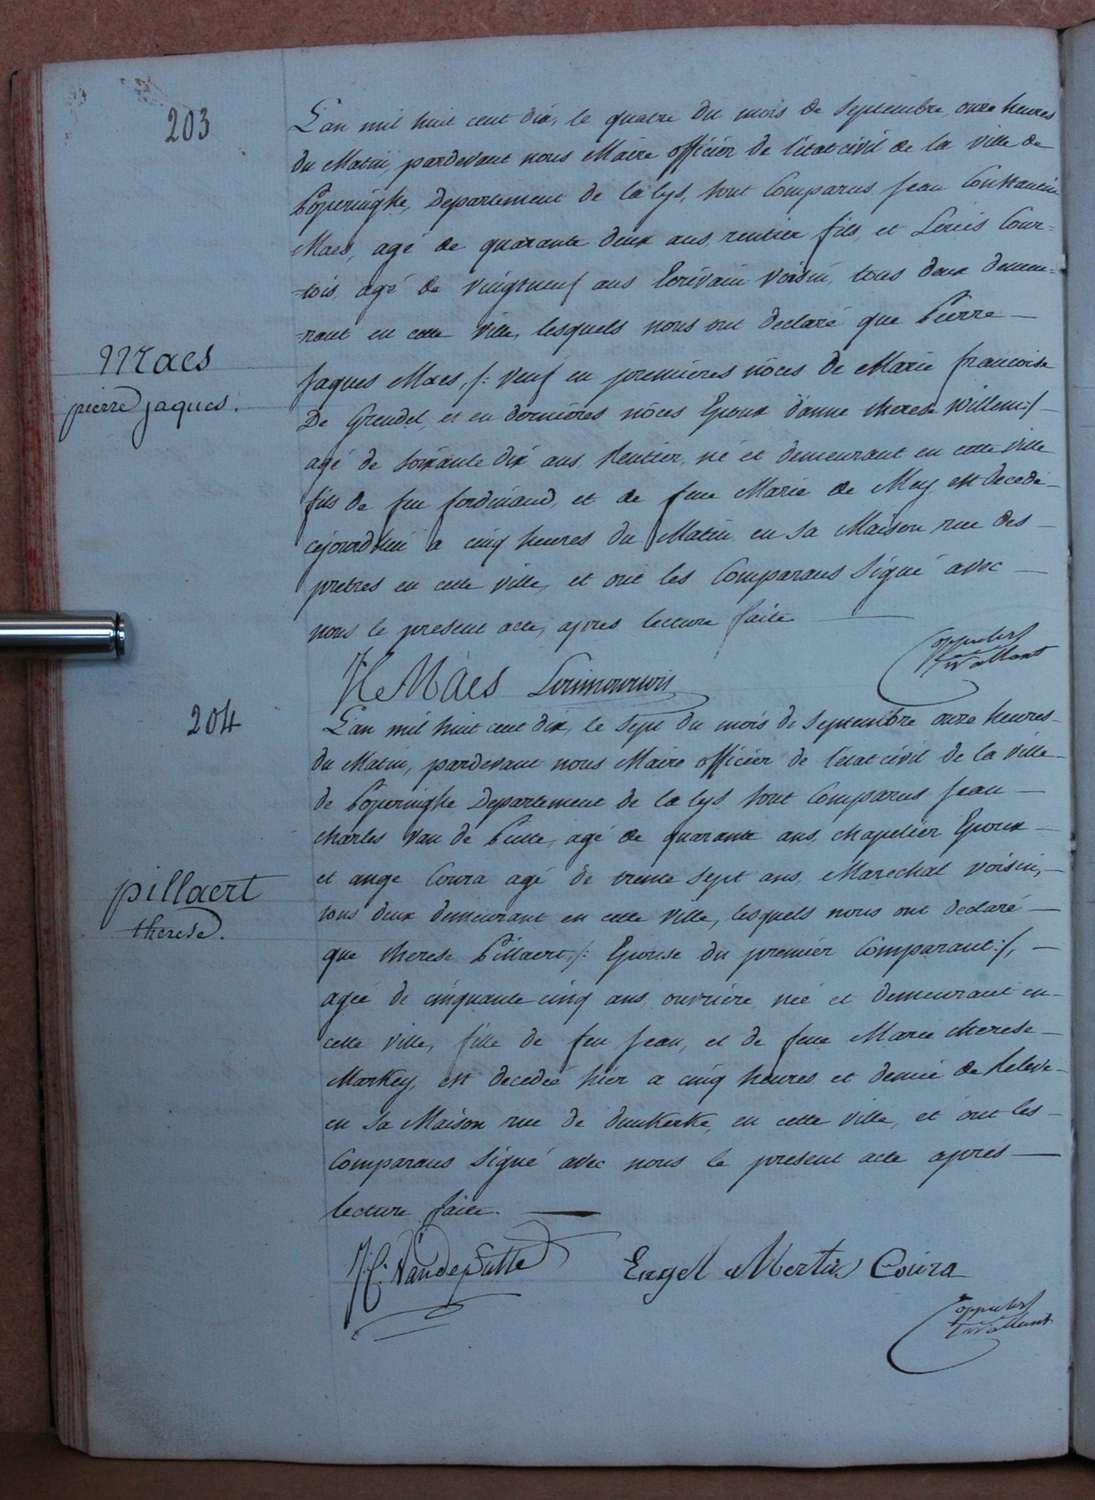 203
L'an mil huit cent dix, le quatre du mois de septembre onze heures
du Matin, pardevant nous Maire officier de l'etat civil de la ville de
Poperinghe, Departement de la lys, sont Comparus Jean Constantin
Maes, agé de quarante deux ans, rentier fils, et Louis Cour=
=tois, agé de vingtneuf ans Ecrivain Voisin, tous deux demeu=
=rant en cette Ville, lesquels nous ont declaré que Pierre —
Maes
pierre jaques.
Jaques Maes, /: veuf en premieres nôces de Marie francoise
De Grendel, et en dernières nôces Epoux d'anne therese Willem :/ —
agé de soixante dix ans Rentier, né et demeurant en cette ville
fils de feu ferdinand, et de feue Marie de Mey est decedé —
cejourd'hui a cinq heures du Matin en sa Maison rue des —
pretres en cette ville, et ont les Comparans Signé avec —
nous le present acte, apres lecture faite —
JC Maes
204
L'an mil huit cent dix, le sept du mois de septembre onze heures —
du Matin, pardevant nous Maire officier de l'etat civil de la ville —
de Poperinghe Departement de la lys, sont Comparus Jean —
charles Van de Putte, agé de quarante ans, chapelier Epoux —
et ange Coura agé de trente sept ans, Marechal voisin, —
pillaert
therese.
tous deux demeurant en cette ville, lesquels nous ont declaré —
que therese Pillaert, /: Epouse du premier Comparant :/, —
agée de cinquante cinq ans, ouvrière née et demeurant en —
cette ville, fille de feu Jean, et de feue Marie therese —
Markey, est decedée hier a cinq heures et demie de Relevé —
en sa Maison rue de dunkerke, en cette ville, et ont les —
Comparans Signé avec nous le present acte apres —
lecture faite. —
J: C: Vandeputte Engel Mertin Coura